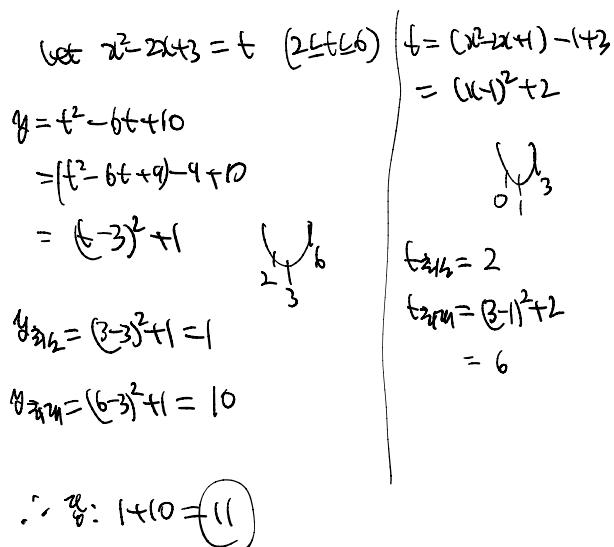 let x²-2x+3 = t (2≤t≤6)
y = t² - 6t + 10
= (t² - 6t + 9) - 9 + 10
= (t-3)² + 1
2 3 6
y최소 = (3-3)² + 1 = 1
y최대 = (6-3)² + 1 = 10
∴ 합: 1+10 = 11
t = (x²-2x+1) - 1 + 3
= (x-1)² + 2
0 1 3
t최소 = 2
t최대 = (3-1)² + 2
= 6